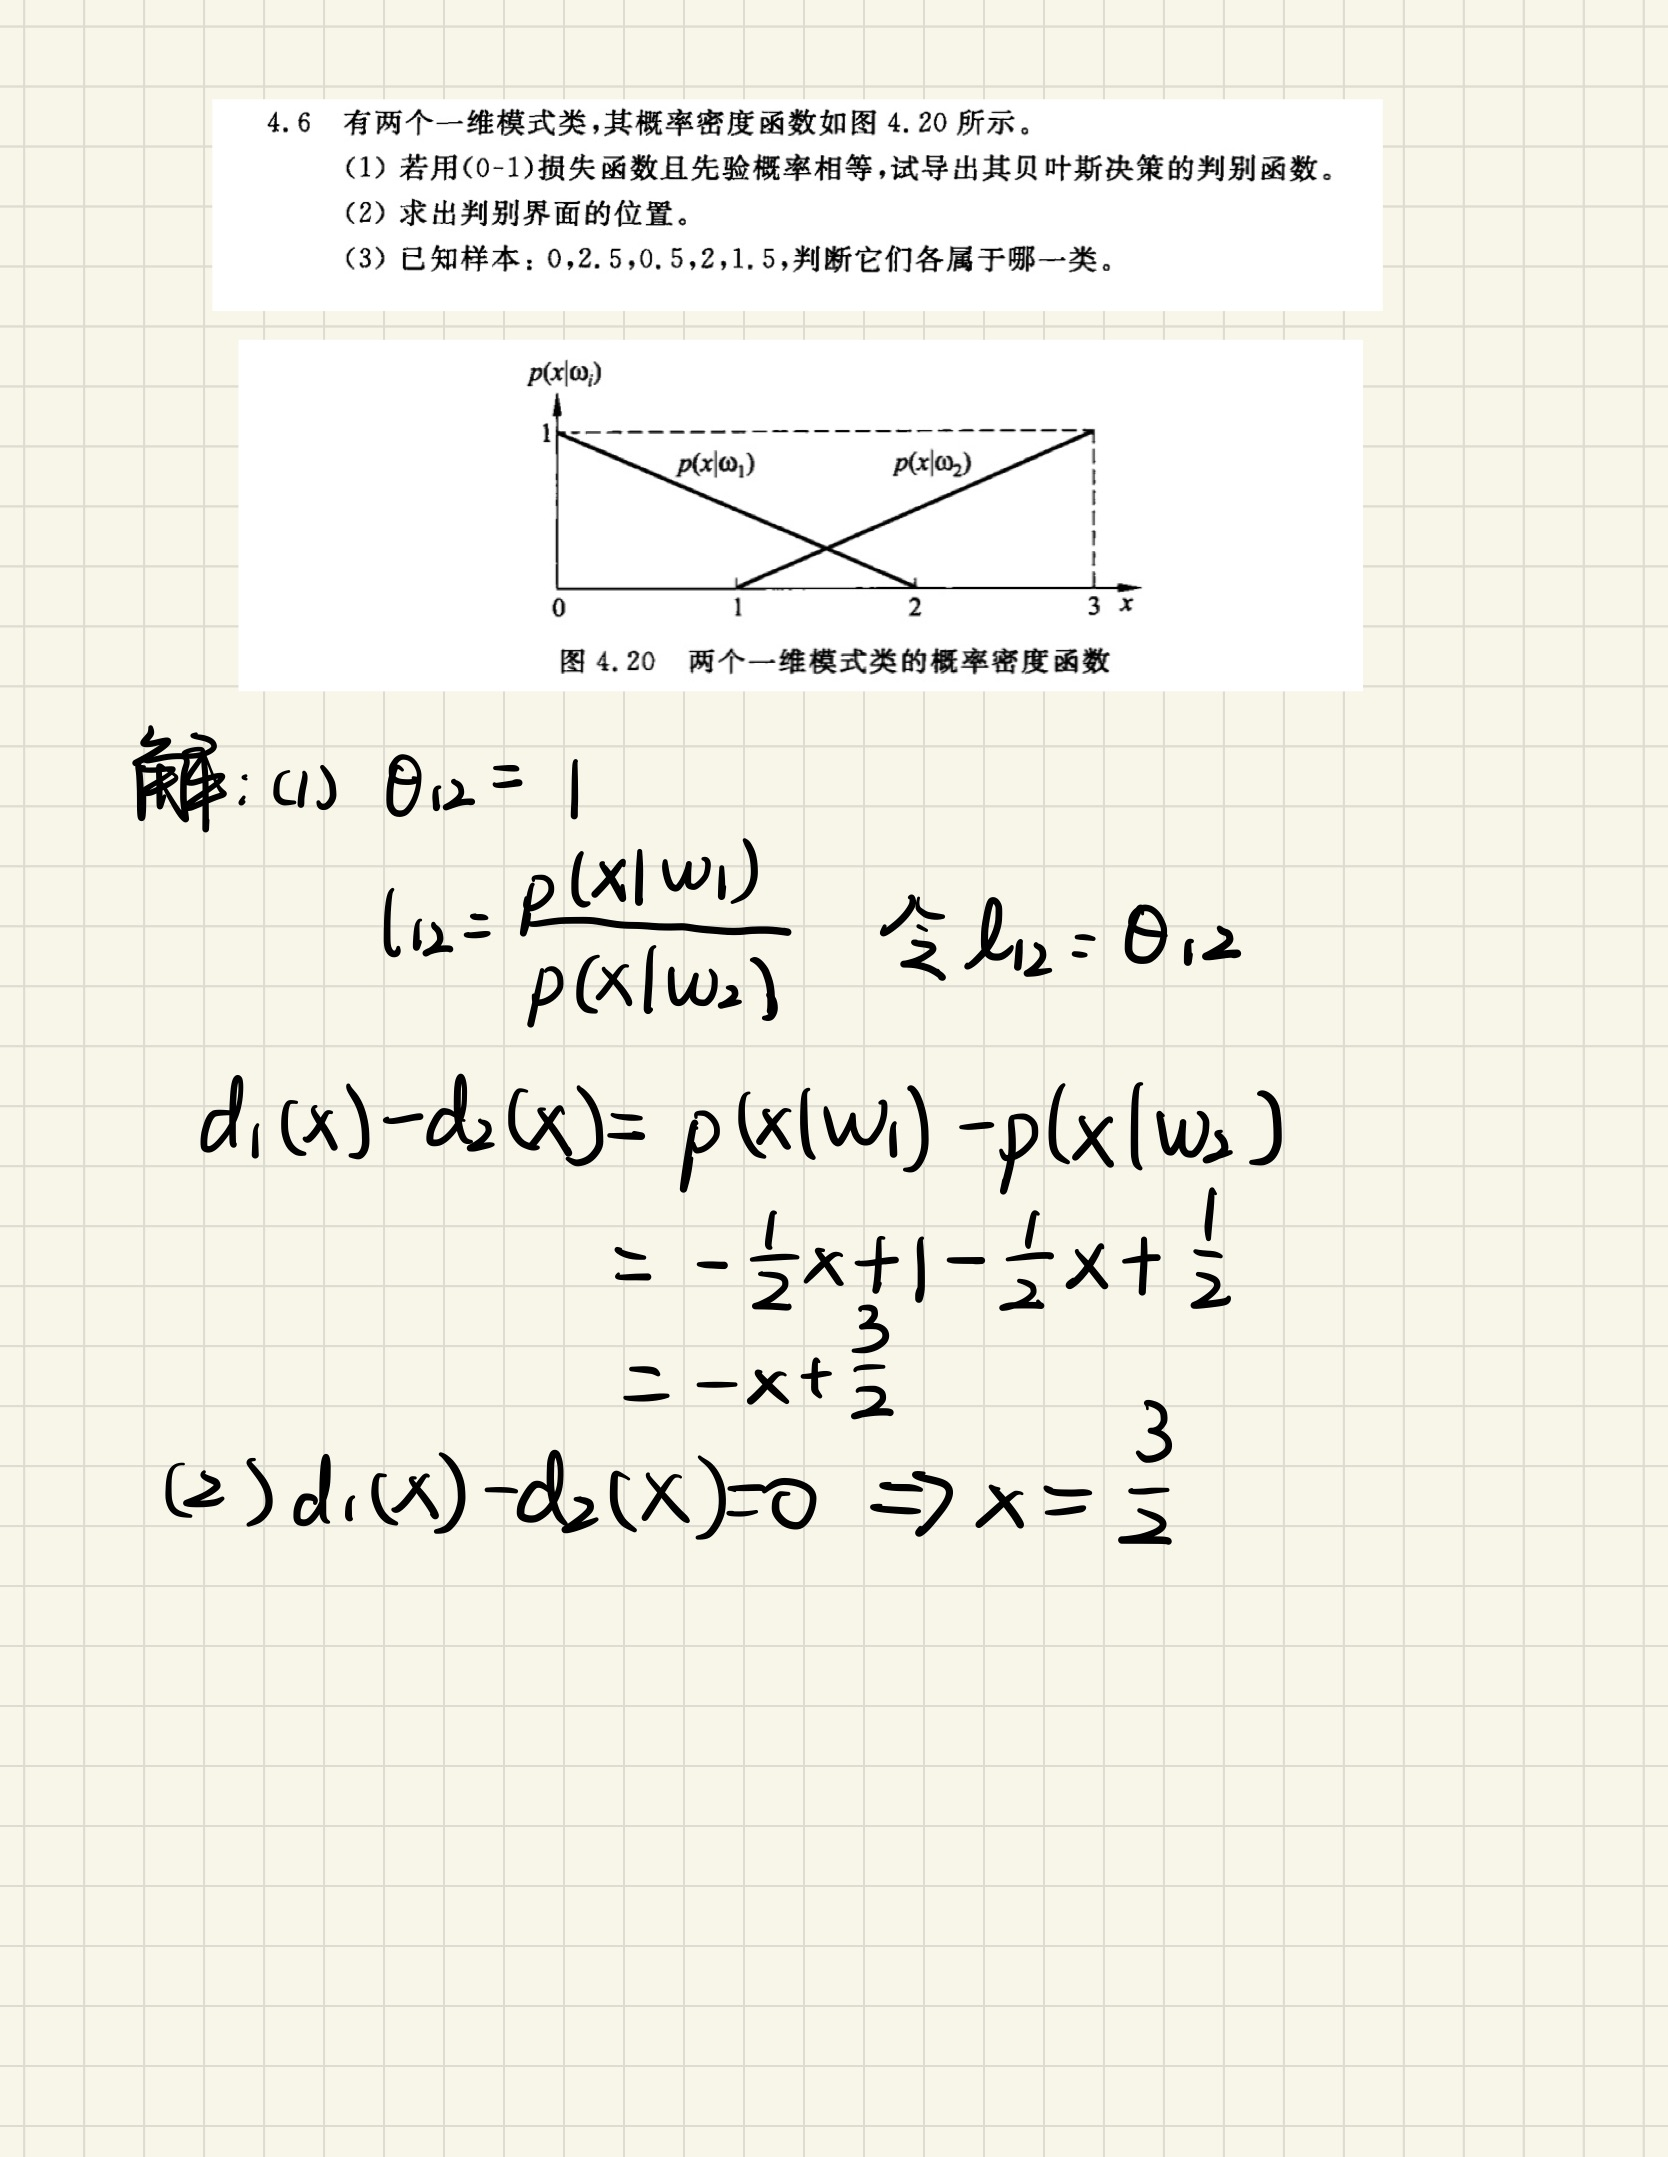 4.6 有两个一维模式类,其概率密度函数如图 4.20 所示。
(1) 若用(0-1)损失函数且先验概率相等,试导出其贝叶斯决策的判别函数。
(2) 求出判别界面的位置。
(3) 已知样本: 0,2.5,0.5,2,1.5,判断它们各属于哪一类。
p(x|ω_i)
1
p(x|ω₁) p(x|ω₂)
0 1 2 3 x
图 4.20 两个一维模式类的概率密度函数
解: (1) θ₁₂ = 1
l₁₂ = p(x|w₁)/p(x|w₂) 令 l₁₂ = θ₁₂
d₁(x) - d₂(x) = p(x|w₁) - p(x|w₂)
= -1/2 x + 1 - 1/2 x + 1/2
= -x + 3/2
(2) d₁(x) - d₂(x) = 0 ⇒ x = 3/2